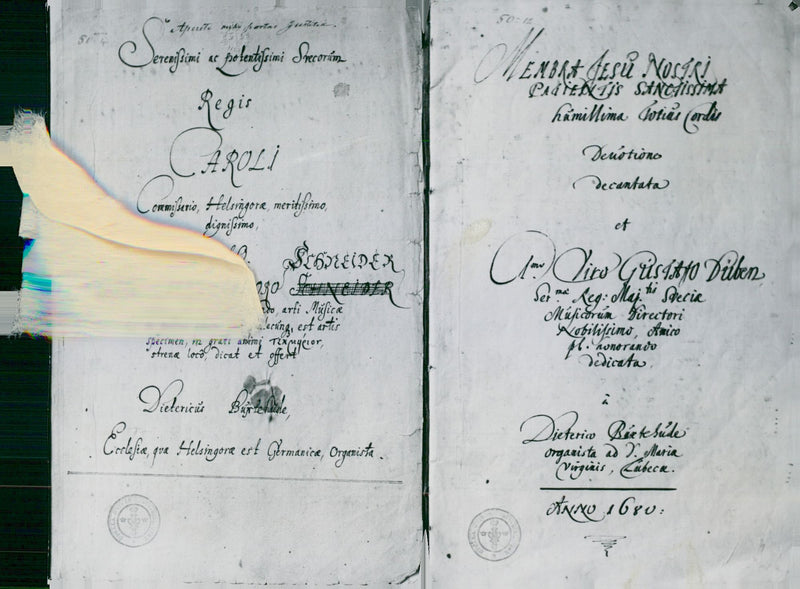 50:4
Aperite mihi portas Justitiæ.
Serenissimi ac potentissimi Svecorum
Regis
CAROLI
Commissario, Helsingoræ, meritissimo,
dignissimo,
SCHNEIDER
SCHNEIDER
arti Musicæ
est artis
specimen, in grati animi
strenæ loco, dicat et offert
Dietericus Buxtehude,
Ecclesiæ, qua Helsingoræ est Germanicæ, Organista.
50:12
MEMBRA JESU NOSTRI
PATIENTIS SANCTISSIMA
humillima Totius Cordis
Devotione
decantata
et
Imo Viro GUSTAVO Düben,
Ser.mæ Reg: Maj.tis Sveciæ
Musicorum Directori
Nobilissimo, Amico
pl. honorando
dedicata
à
Dieterico Buxtehude
organista ad S. Mariæ
Virginis, Lübecæ.
ANNO 1680: